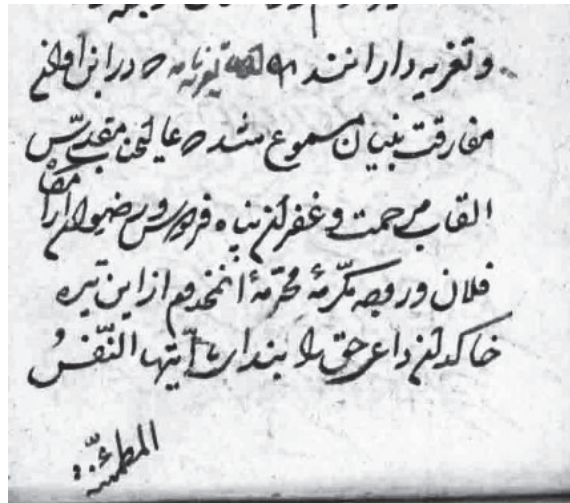 و تعزیه دارانند تعزیه نامه در این اوان
مفارقت بنیان مسموع شد که عالیجناب مقدس
القاب مرحمت و غفران پناه فردوس و رضوان آرامگاه
فلان و زوجه مکرّمهٔ محترمهٔ آنمخدوم از این تیره
خاکدان داعی حق را بندای یا أیتها النّفسُ
المطمئنّة